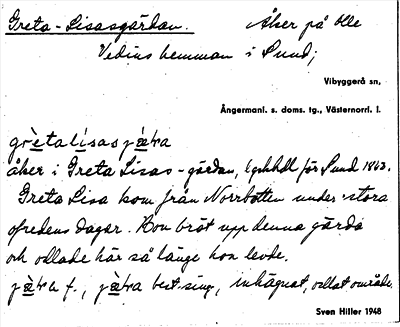 Greta-Lisasgärdan. Åker på Olle
Vedins hemman i Sund;
Vibyggerå sn,
Ångermanl. s. doms. tg., Västernorrl. l.
åker i Greta Lisas-gärdan, för Sund 1863.
Greta Lisa kom från Norrbotten under stora
ofredens dagar. Hon bröt upp denna gärda
och odlade här så länge hon levde.
f., best. sing., inhägnat, odlat område.
Sven Hiller 1948